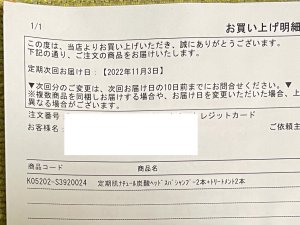 1/1
お買い上げ明細
この度は、当店よりお買い上げいただき、誠にありがとうございます。
下記の通り、ご注文の商品をお届けいたします。
定期次回お届け日：【2022年11月3日】
▼次回分のご変更は、次回お届け日の10日前までにお問合せください。▼
※複数商品を同梱しお届けする場合や、お届け日を変更いただいた場合、上
異なる場合がございます。
注文番号
レジットカード
お客様名
ご依頼主
商品コード
商品名
K05202-S3920024
定期肌ﾅﾁｭｰﾙ炭酸ﾍｯﾄﾞｽﾊﾟｼｬﾝﾌﾟｰ2本+ﾄﾘｰﾄﾒﾝﾄ2本